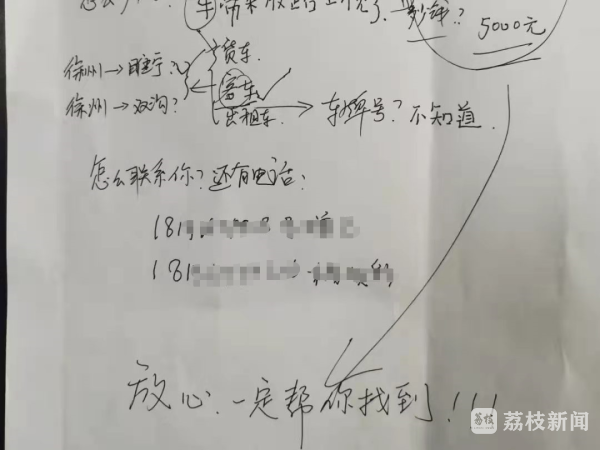 多少钱? 5000元
货车.
徐州→睢宁?
客车✓
徐州→双沟?
出租车. → 车牌号? 不知道.
怎么联系你? 还有电话:
181
181
放心. 一定帮你找到!!!
荔枝 荔枝新闻